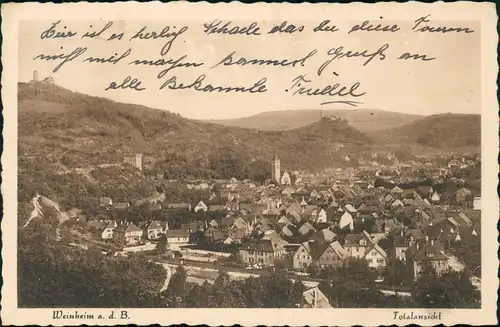 Hier ist es herlig Schade das du diese Touren
nit mit magen kannest Gruß an
alle Bekannte Friedel
Weinheim a. d. B.
Totalansicht